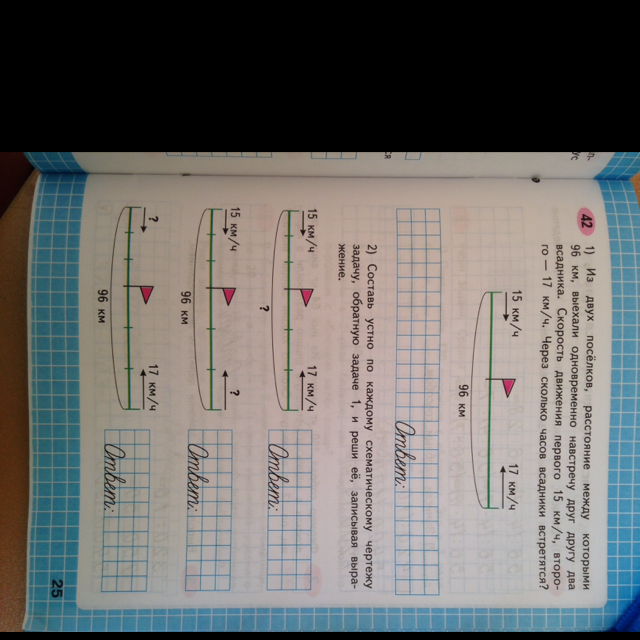 42
1) Из двух посёлков, расстояние между которыми
96 км, выехали одновременно навстречу друг другу два
всадника. Скорость движения первого 15 км/ч, второ-
го — 17 км/ч. Через сколько часов всадники встретятся?
15 км/ч 17 км/ч
96 км
Ответ:
2) Составь устно по каждому схематическому чертежу
задачу, обратную задаче 1, и реши её, записывая выра-
жение.
15 км/ч 17 км/ч
?
Ответ:
15 км/ч ?
96 км
Ответ:
? 17 км/ч
96 км
Ответ:
25